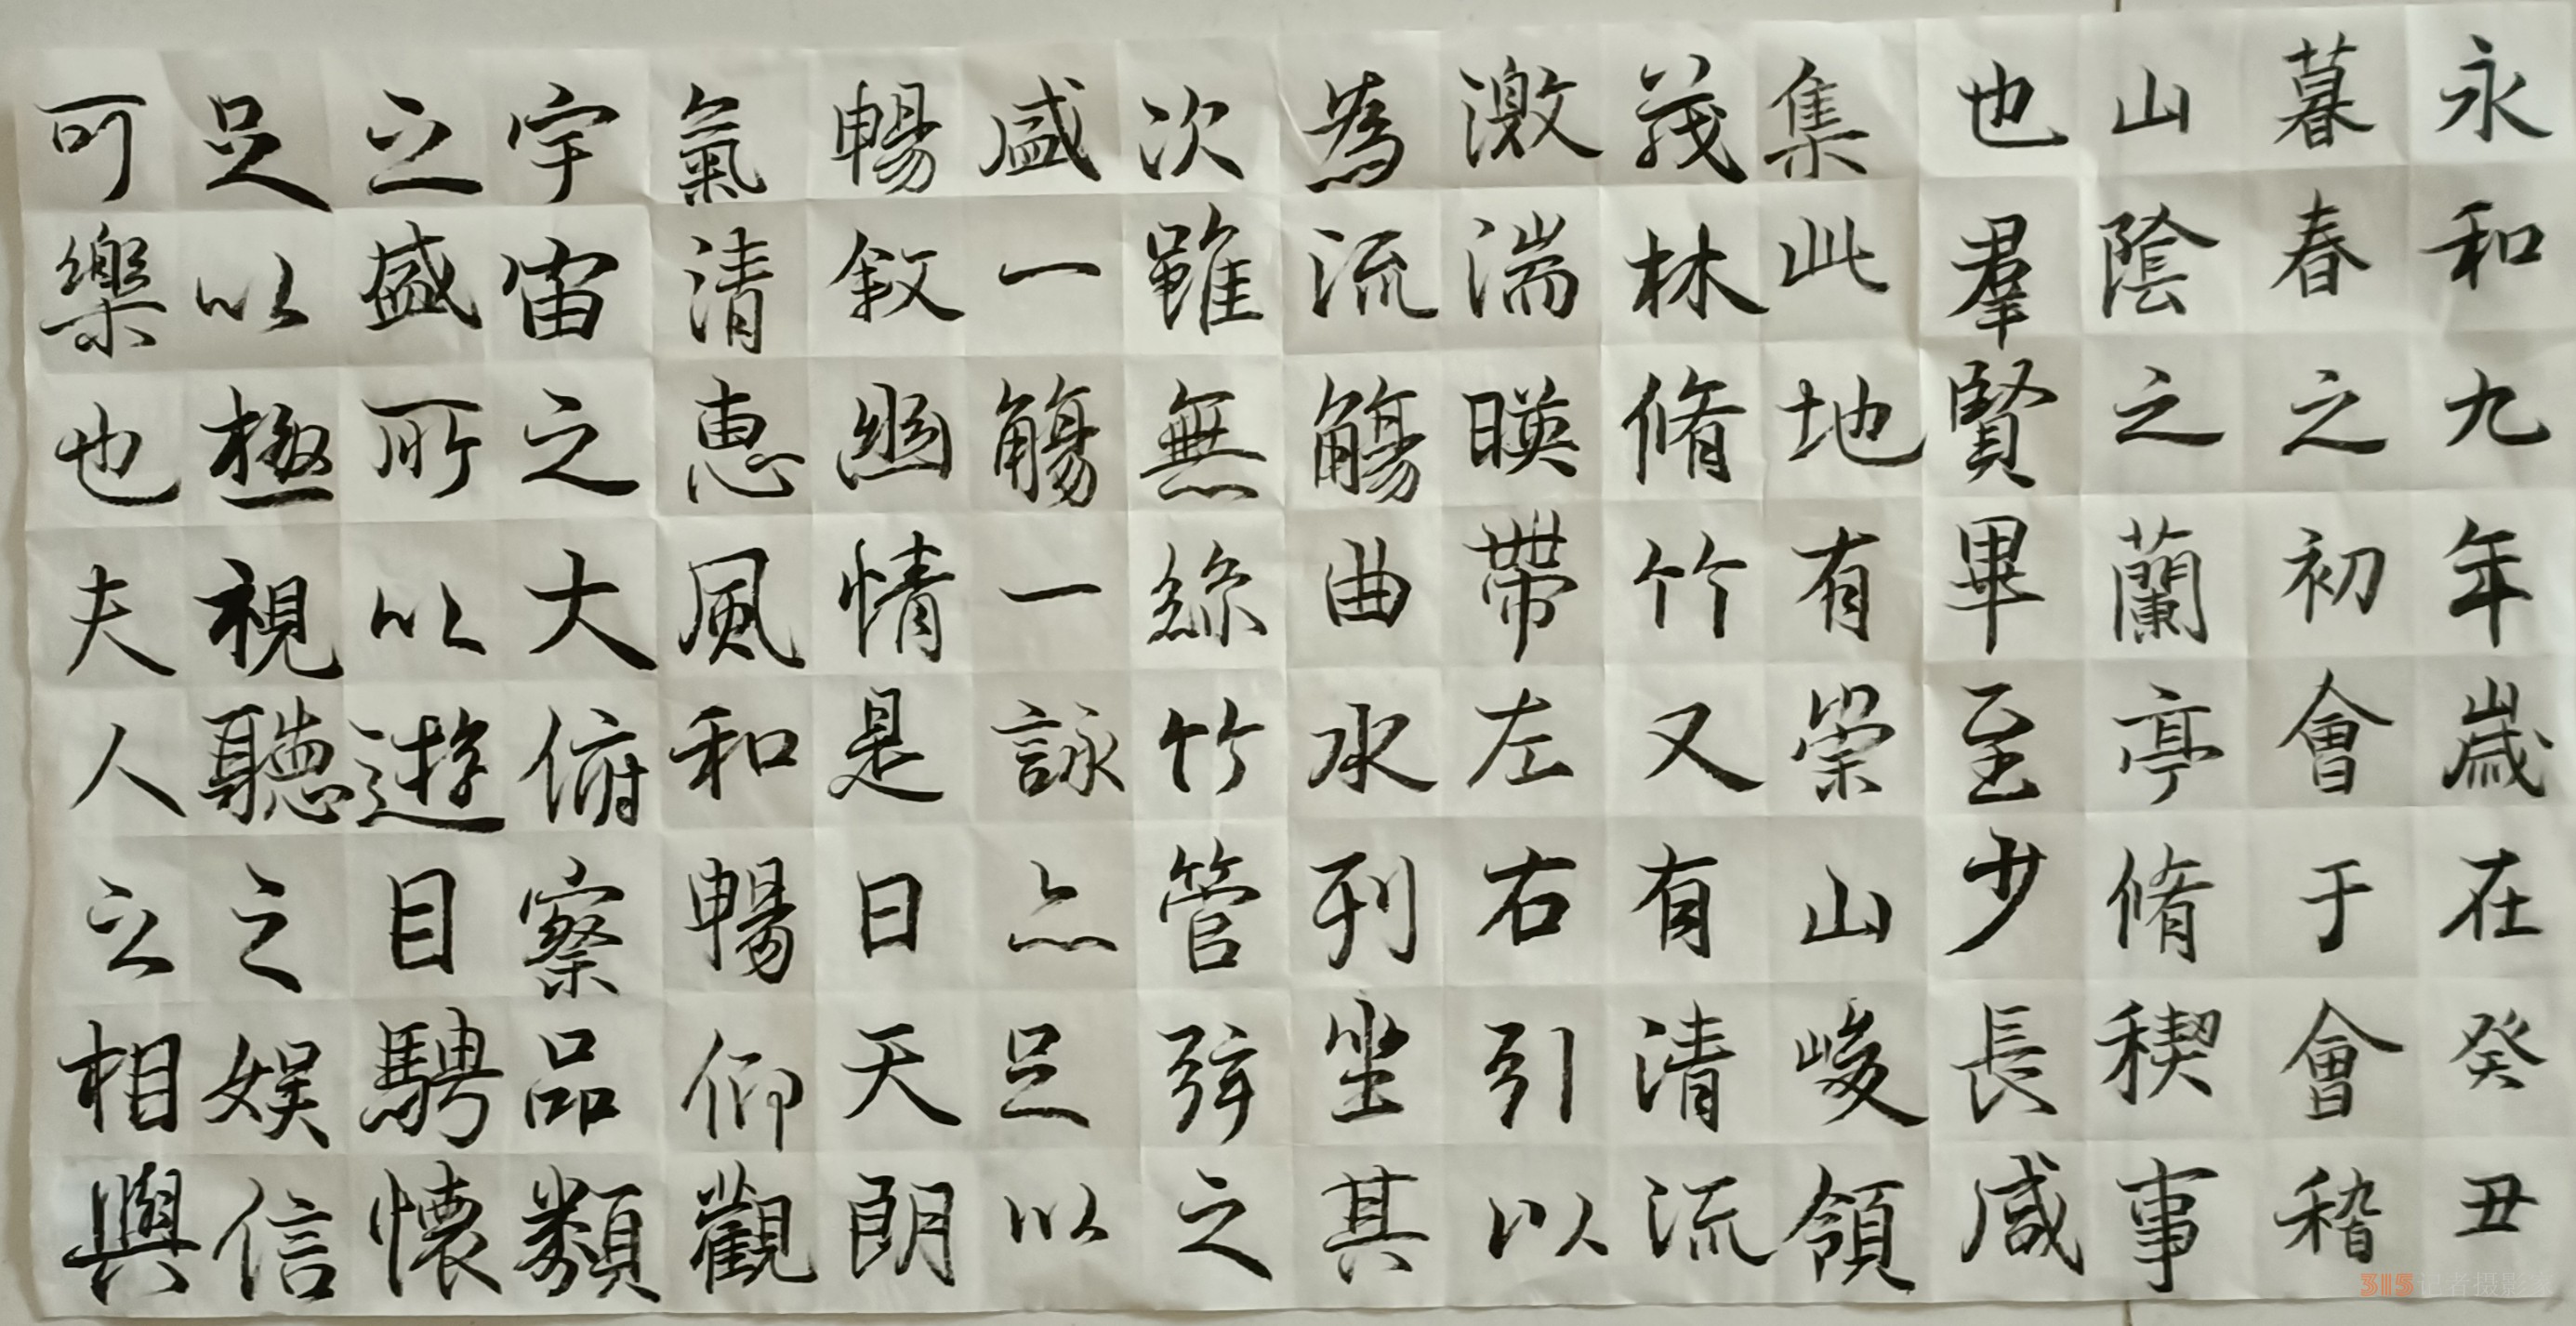 永和九年歲在癸丑
暮春之初會于會稽
山陰之蘭亭脩稧事
也羣賢畢至少長咸
集此地有崇山峻領
茂林脩竹又有清流
激湍暎帶左右引以
為流觴曲水列坐其
次雖無絲竹管弦之
盛一觴一詠亦足以
暢敘幽情是日天朗
氣清惠風和暢仰觀
宇宙之大俯察品類
之盛所以遊目騁懷
足以極視聽之娛信
可樂也夫人之相與
315记者摄影